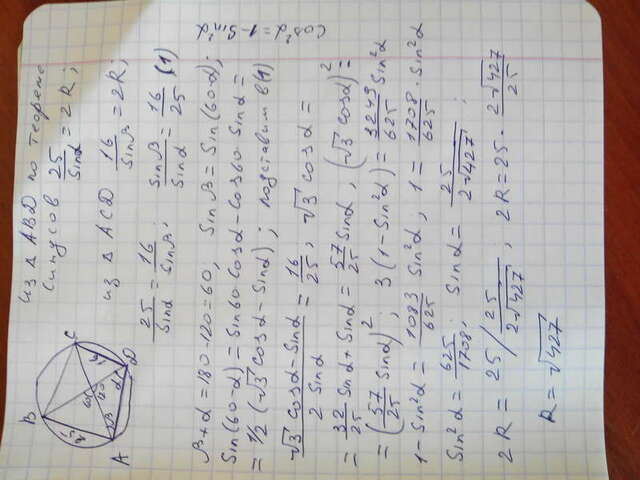 Из △ ABD по теореме
синусов 25/Sinα = 2R;
из △ ACD 16/Sinβ = 2R;
25/Sinα = 16/Sinβ; Sinβ/Sinα = 16/25 (1)
β+α = 180-120 = 60; Sinβ = Sin(60-α);
Sin(60-α) = Sin60·cosα - cos60·Sinα =
= 1/2 (√3 cosα - Sinα); подставим в(1)
(√3 cosα - Sinα)/(2 Sinα) = 16/25, √3 cosα =
= 32/25 Sinα + Sinα = 57/25 Sinα, (√3 cosα)² =
= (57/25 Sinα)²; 3(1-Sin²α) = 3249/625 Sin²α
1-Sin²α = 1083/625 Sin²α, 1 = 1708/625 · Sin²α
Sin²α = 625/1708; Sinα = 25/(2√427);
2R = 25/(25/(2√427)), 2R = 25· (2√427)/25
R = √427
Cos²α = 1-Sin²α
B
C
A
D
120
β
α